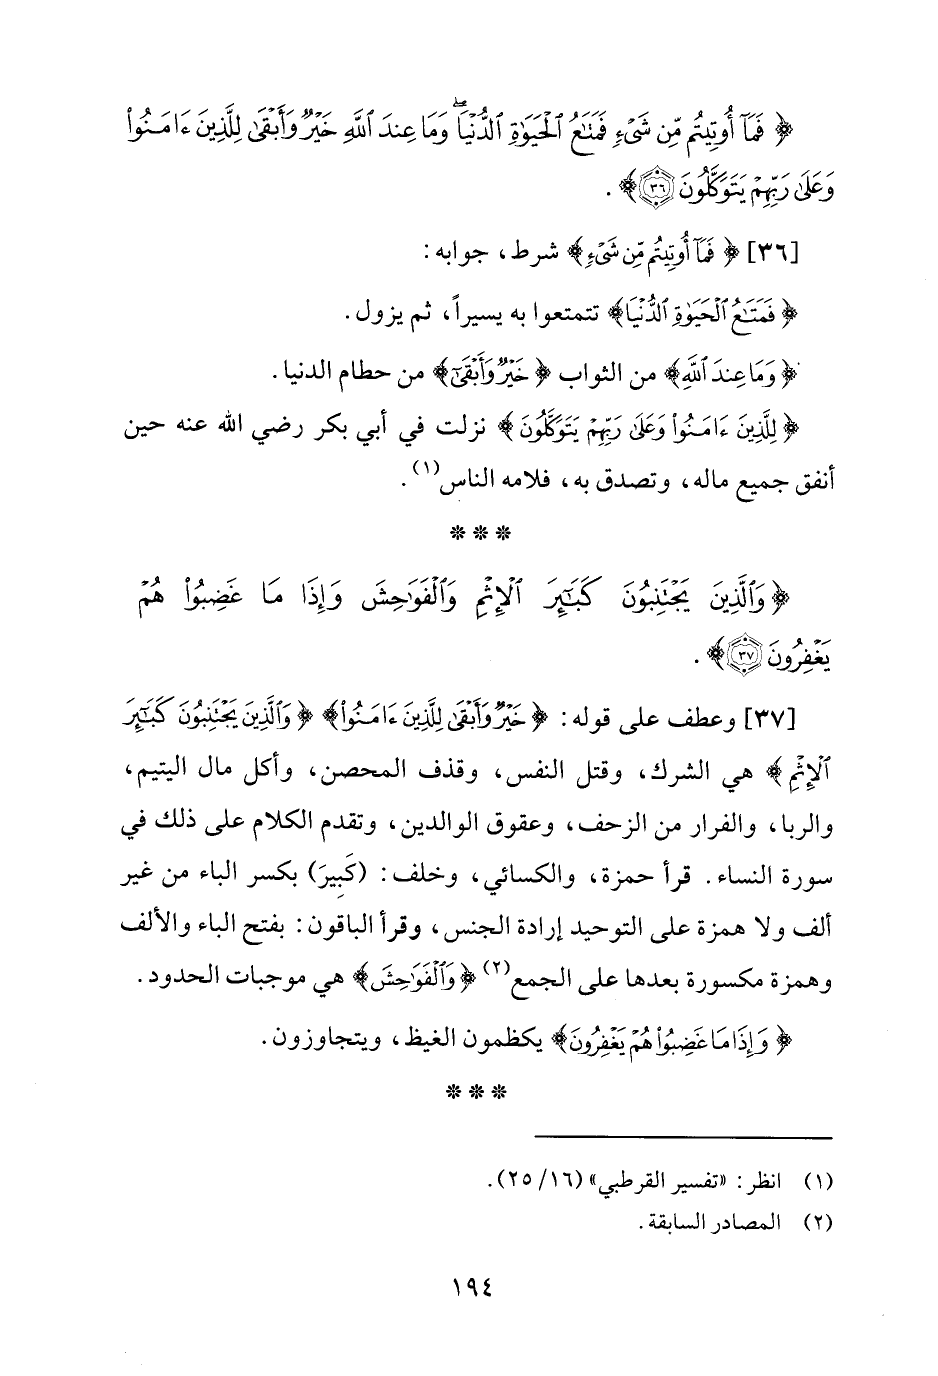 ﴿ فَمَآ أُوتِيتُم مِّن شَىْءٍ فَمَتَـٰعُ ٱلْحَيَوٰةِ ٱلدُّنْيَا ۖ وَمَا عِندَ ٱللَّهِ خَيْرٌ وَأَبْقَىٰ لِلَّذِينَ ءَامَنُوا۟
وَعَلَىٰ رَبِّهِمْ يَتَوَكَّلُونَ ٣٦ ﴾ .
[٣٦] ﴿ فَمَآ أُوتِيتُم مِّن شَىْءٍ ﴾ شرط، جوابه:
﴿ فَمَتَـٰعُ ٱلْحَيَوٰةِ ٱلدُّنْيَا ﴾ تتمتعوا به يسيراً، ثم يزول.
﴿ وَمَا عِندَ ٱللَّهِ ﴾ من الثواب ﴿ خَيْرٌ وَأَبْقَىٰ ﴾ من حطام الدنيا.
﴿ لِلَّذِينَ ءَامَنُوا۟ وَعَلَىٰ رَبِّهِمْ يَتَوَكَّلُونَ ﴾ نزلت في أبي بكر رضي الله عنه حين
أنفق جميع ماله، وتصدق به، فلامه الناس(١).
***
﴿ وَٱلَّذِينَ يَجْتَنِبُونَ كَبَـٰٓئِرَ ٱلْإِثْمِ وَٱلْفَوَٰحِشَ وَإِذَا مَا غَضِبُوا۟ هُمْ
يَغْفِرُونَ ٣٧ ﴾ .
[٣٧] وعطف على قوله: ﴿ خَيْرٌ وَأَبْقَىٰ لِلَّذِينَ ءَامَنُوا۟ ﴾ ﴿ وَٱلَّذِينَ يَجْتَنِبُونَ كَبَـٰٓئِرَ
ٱلْإِثْمِ ﴾ هي الشرك، وقتل النفس، وقذف المحصن، وأكل مال اليتيم،
والربا، والفرار من الزحف، وعقوق الوالدين، وتقدم الكلام على ذلك في
سورة النساء. قرأ حمزة، والكسائي، وخلف: (كَبِيرَ) بكسر الباء من غير
ألف ولا همزة على التوحيد إرادة الجنس، وقرأ الباقون: بفتح الباء والألف
وهمزة مكسورة بعدها على الجمع(٢) ﴿ وَٱلْفَوَٰحِشَ ﴾ هي موجبات الحدود.
﴿ وَإِذَا مَا غَضِبُوا۟ هُمْ يَغْفِرُونَ ﴾ يكظمون الغيظ، ويتجاوزون.
***
(١) انظر: «تفسير القرطبي» (١٦/ ٢٥).
(٢) المصادر السابقة.
١٩٤